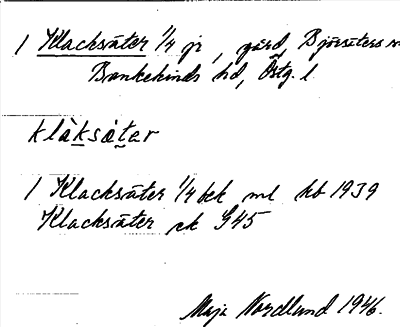 1 Klacksäter 1/4 jr, gård, Björsäters sn
Bankekinds hd, Östg. l
klàksä̀ter
1 Klacksäter 1/4 bck ml kb 1939
Klacksäter ek G45
Maja Nordlund 1946.